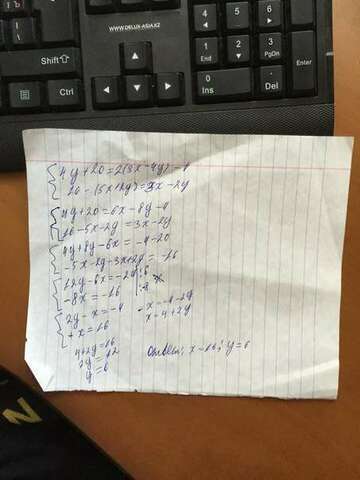 WWW.DELUX-ASIA.KZ
Shift
Ctrl
1
End
2
3
PgDn
Enter
0
Ins
.
Del
4
5
6
4y+20=2(3x-4y)-4
16-(5x+2y)=3x-2y
4y+20=6x-8y-4
16-5x-2y=3x-2y
4y+8y-6x=-4-20
-5x-2y-3x+2y=-16
12y-6x=-24 |:6
-8x=-16
2y-x=-4
-x=-4-2y
x=4+2y
+x=16
4+2y=16
2y=12
y=6
Ответ: x=16; y=6